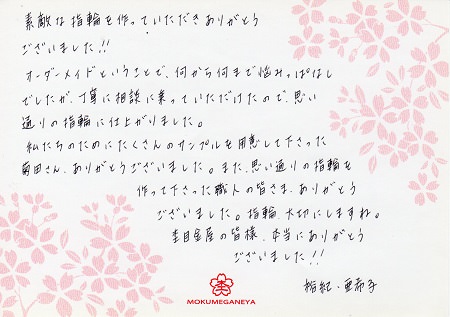 素敵な指輪を作っていただきありがとう
ございました!!
オーダーメイドということで、何から何まで悩みっぱなし
でしたが、丁寧に相談に乗っていただけたので、思い
通りの指輪に仕上がりました。
私たちのためにたくさんのサンプルを用意して下さった
菊田さん、ありがとうございました。また、思い通りの指輪を
作って下さった職人の皆さま、ありがとう
ございました。指輪、大切にしますね。
杢目金屋の皆様、本当にありがとう
ございました!!
裕紀・亜希子
MOKUMEGANEYA